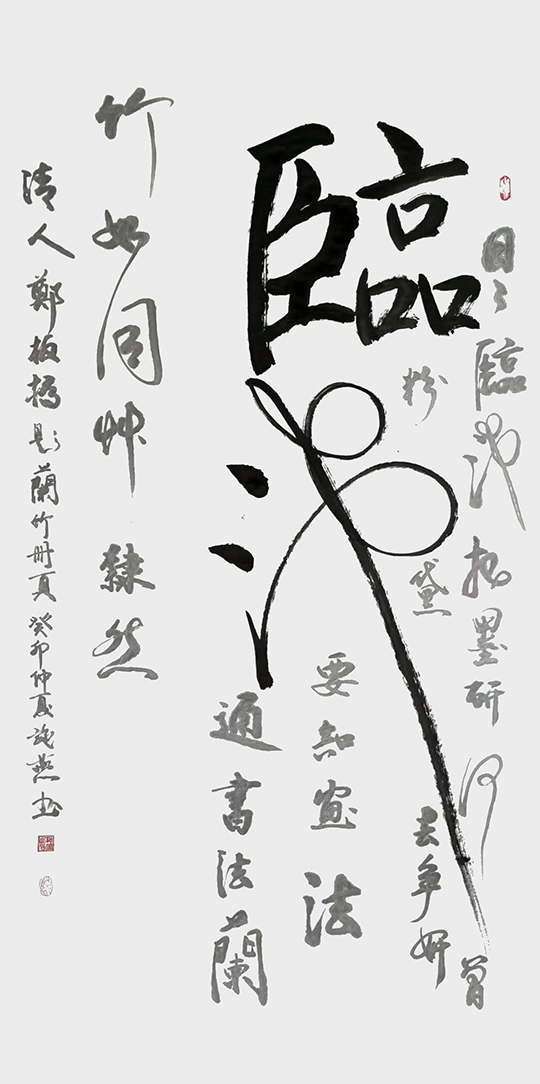 日〻臨池把墨研何曾
粉黛去争妍
臨池
要知畫法
通書法蘭
竹如同艸隸然
清人鄭板橋題蘭竹册頁癸卯仲夏燕书